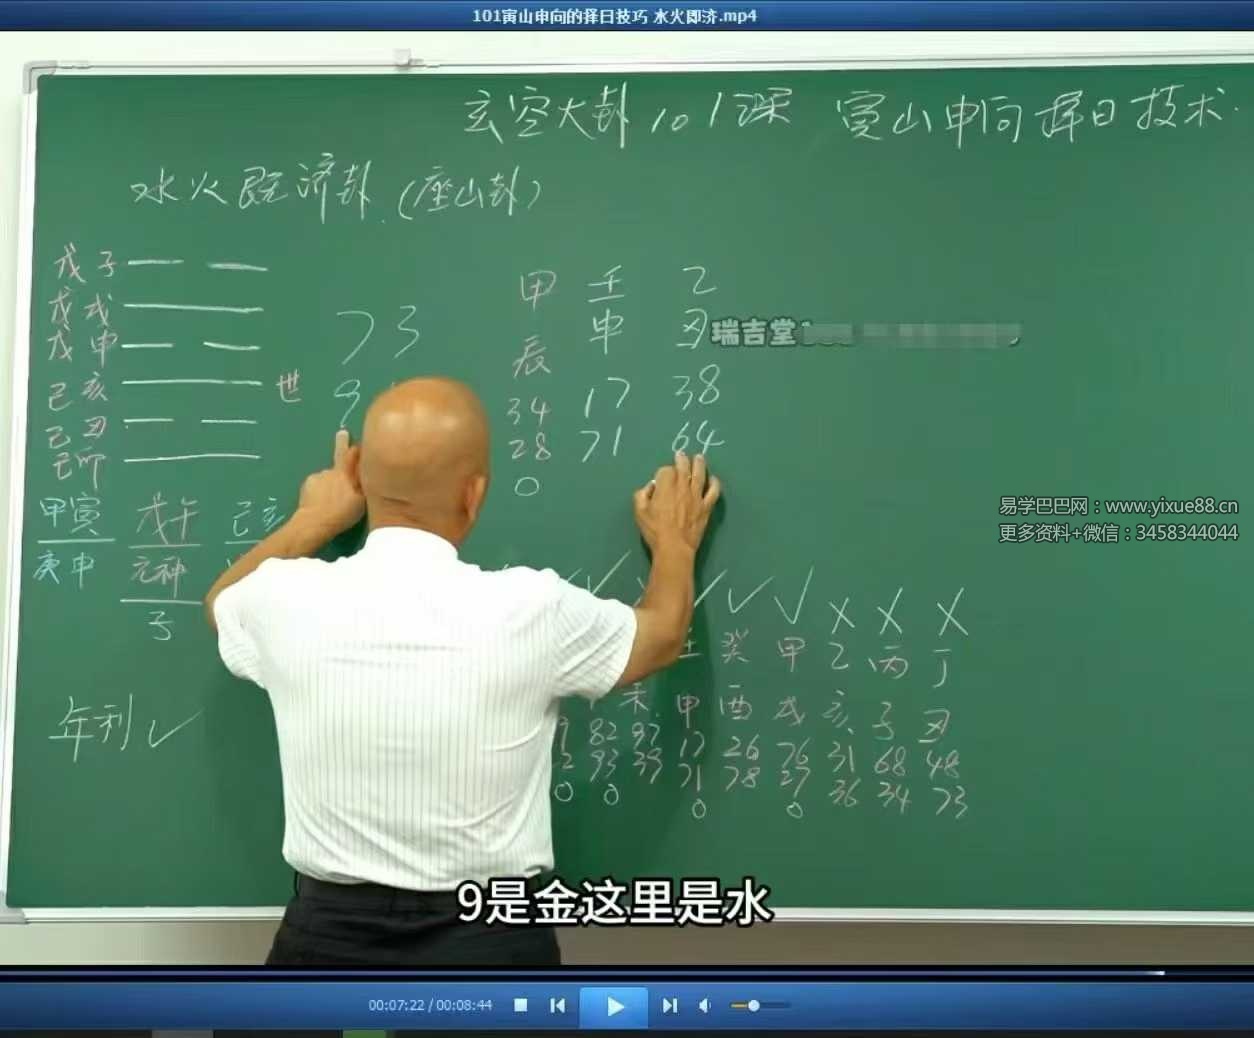 101寅山申向的择日技巧 水火即济.mp4
玄空大卦101课 寅山申向择日技术
水火既济卦(座山卦)
戊子
戊戌
戊申
己亥 世
己丑
己卯
73
9
甲 壬 乙
辰 申 丑
34 17 38
28 71 64
0
瑞吉堂
甲寅 戊午 己亥
庚申 元神
子
易学巴巴网：www.yixue88.cn
更多资料+微信：3458344044
年利✓
✓ ✓ ✓ X X X
壬 癸 甲 乙 丙 丁
未 申 酉 戌 亥 子 丑
82 97 17 26 76 31 68 48
93 39 71 78 27 36 34 73
0 0 0 0
9是金这里是水
00:07:22 / 00:08:44